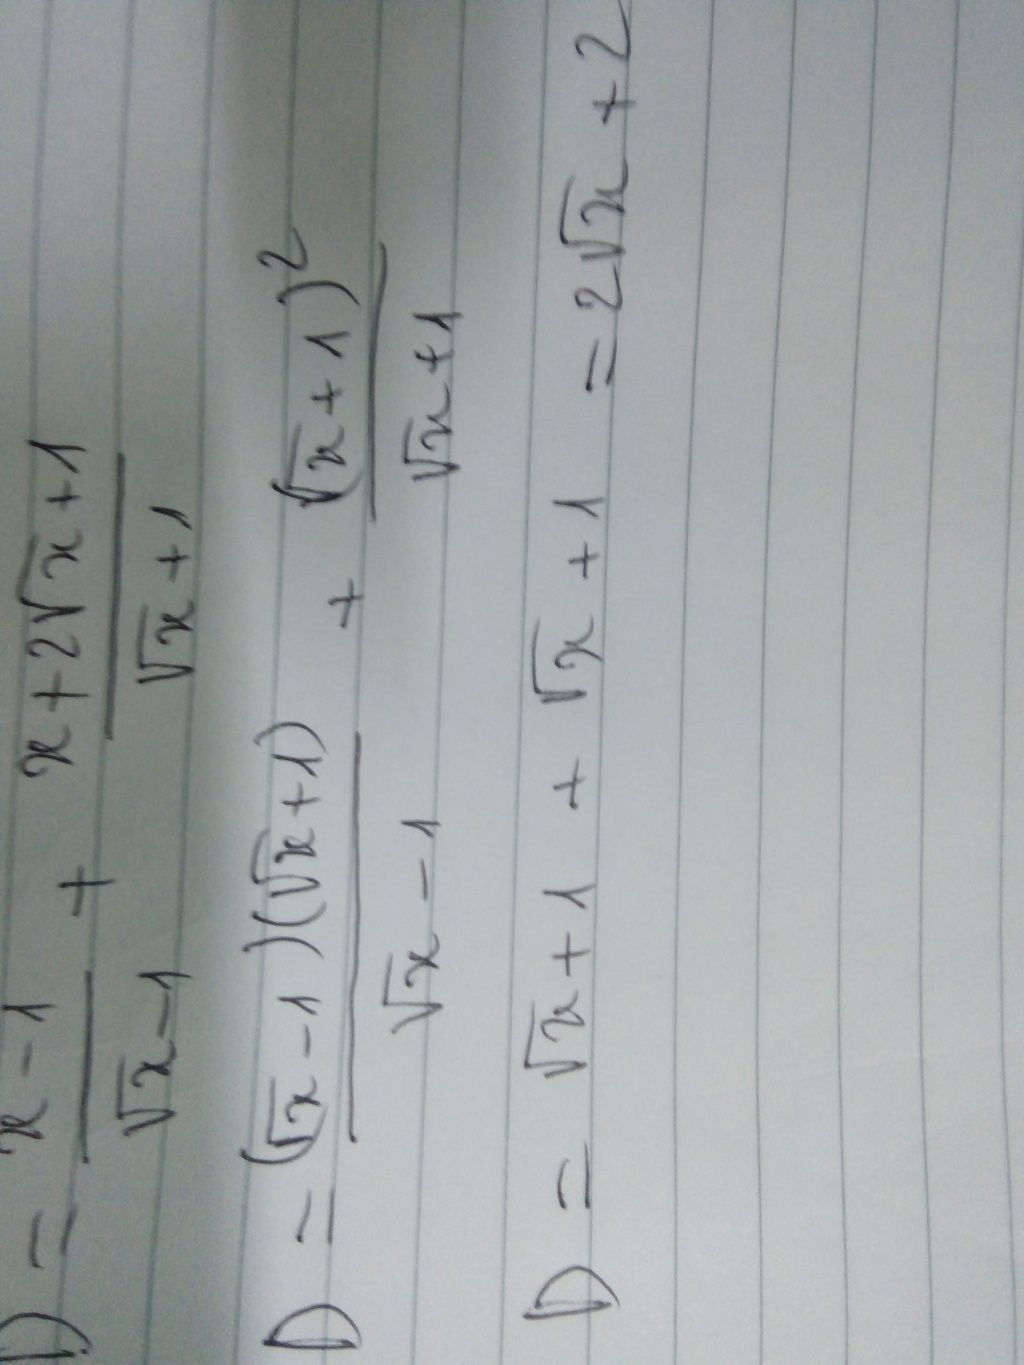 D = x - 1 / √x - 1 + x + 2√x + 1 / √x + 1
D = (√x - 1)(√x + 1) / √x - 1 + (√x + 1)² / √x + 1
D = √x + 1 + √x + 1 = 2√x + 2